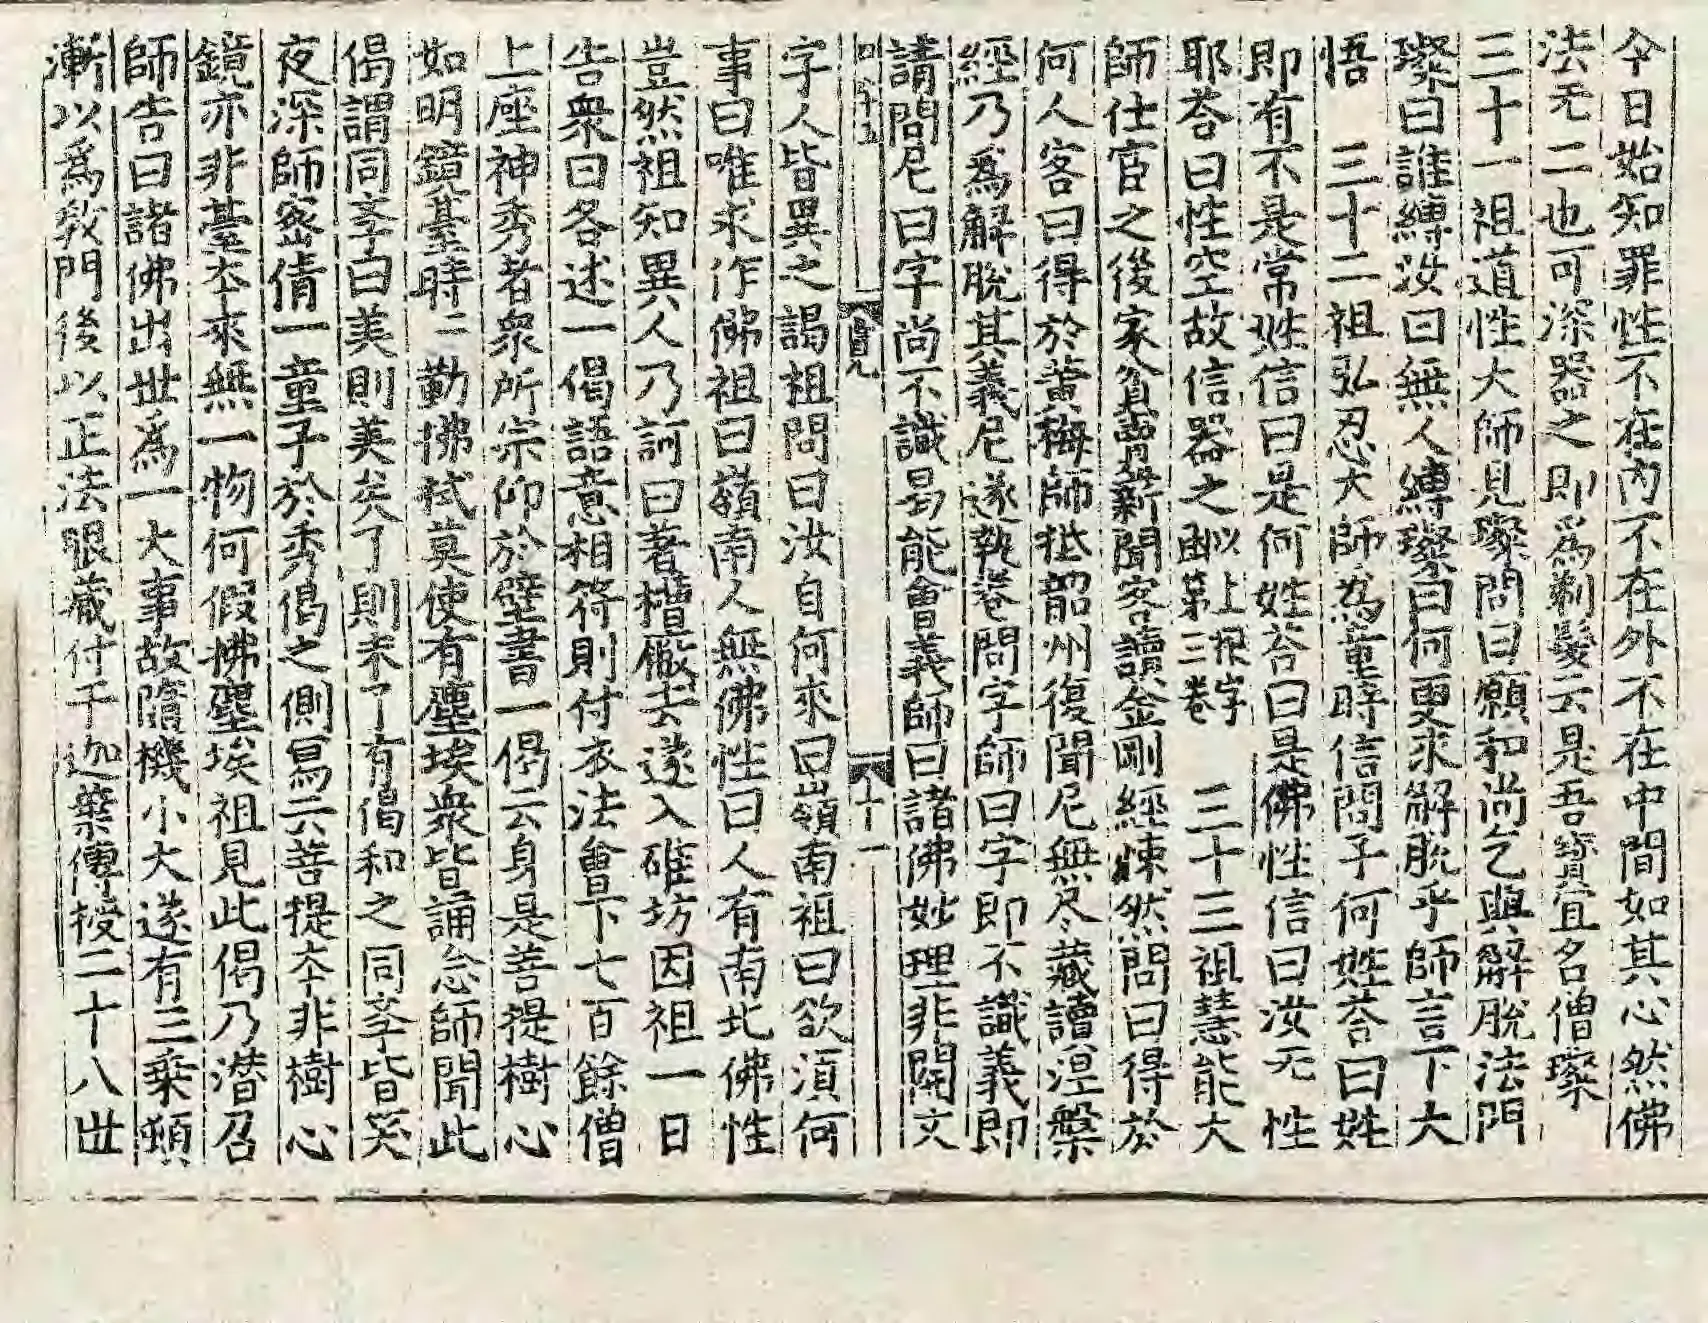 今日始知罪性不在內不在外不在中間如其心然佛
法无二也可深器之即爲剃髮云是吾寶宜名僧璨
三十一祖道性大師見璨問曰願和尚乞與解脫法門
璨曰誰縛汝曰無人縛璨曰何更求解脫乎師言下大
悟　三十二祖弘忍大師為童時信問子何姓荅曰姓
即有不是常姓信曰是何姓荅曰是佛性信曰汝无性
耶荅曰性空故信器之以上根字函第三卷　三十三祖慧能大
師仕宦之後家貧賣薪聞客讀金剛經悚然問曰得於
何人客曰得於黃梅師抵韶州復聞尼無尽藏讀涅槃
經乃爲解脫其義尼遂執卷問字師曰字即不識義即
請問尼曰字尚不識曷能會義師曰諸佛妙理非開文
貞九
十一
字人皆異之謁祖問曰汝自何來曰嶺南祖曰欲湏何
事曰唯求作佛祖曰嶺南人無佛性曰人有南北佛性
豈然祖知異人乃訶曰著槽厰去遂入碓坊因祖一日
告衆曰各述一偈語意相符則付衣法會下七百餘僧
上座神秀者衆所宗仰於壁書一偈云身是菩提樹心
如明鏡臺時〻勤拂拭莫使有塵埃衆皆誦念師聞此
偈謂同李白美則美矣了則未了有偈和之同李皆笑
夜深師密倩一童子於秀偈之側寫云菩提本非樹心
鏡亦非臺本來無一物何假拂塵埃祖見此偈乃潜召
師告曰諸佛出世爲一大事故隨機小大遂有三乘頓
漸以爲敎門後以正法眼藏付于迦葉傳授二十八世